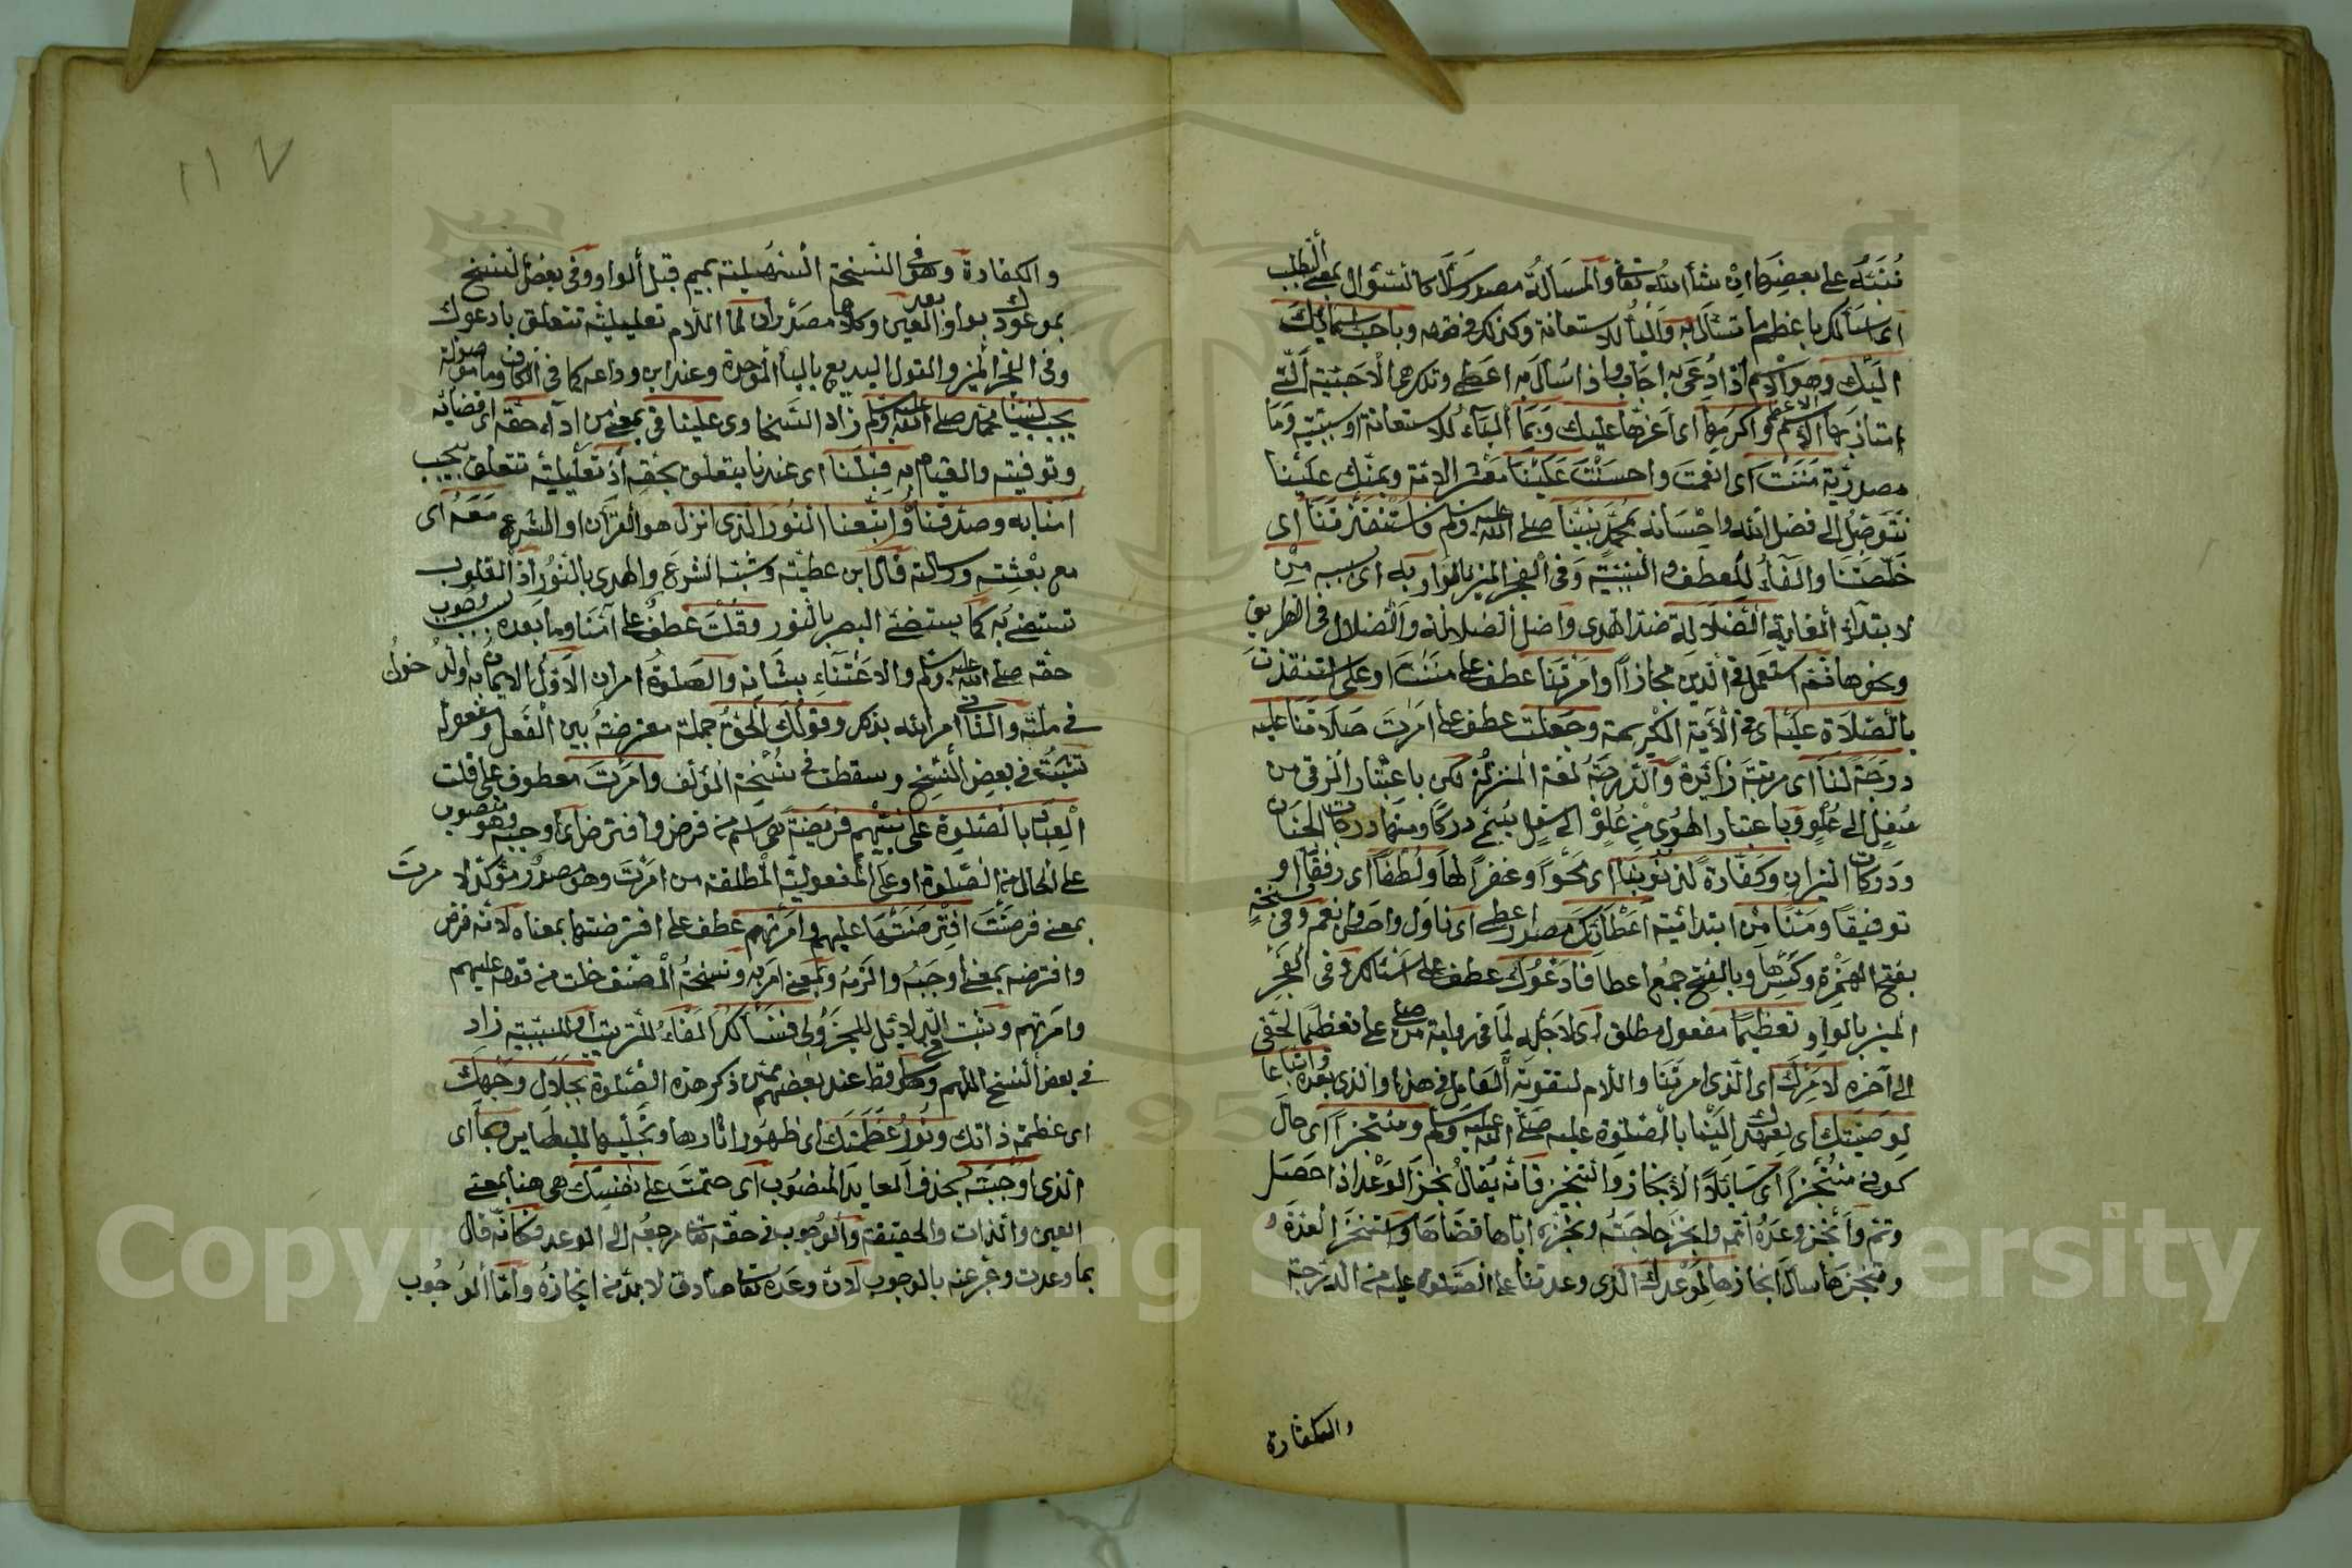 ننبه على بعضها ان شاء الله تعا والمسألة مصدر سأل كالسؤال بمعنى الطلب
اى اسألك باعظم ما تسئل به والباء للاستعانة وكذلك فى قوله وباحب اسمائك
اليك وهو الاسم اذا دعى به اجاب واذا سأل به اعطى وتلك هى الاحبية التى
امتاز بها الاسم الاعظم واكرمها اى اعزها عليك وبما الباء للاستعانة او سببية وما
مصدرية مننت اى انعمت واحسنت علينا معشر الامة وبمنك علينا
نتوصل الى فضل الله واحسانه بمحمد نبينا صلى الله عليه وسلم فاستنقذتنا اى
خلصتنا والفاء للعطف و السببية وفى الفجر المنير بالواو به اى بسببه من
لابتداء الغاية الضلالة ضد الهدى واصل الضلالة والضلال فى الطريق
ونحوها ثم استعمل فى الدين مجازا وامرتنا عطف على مننت او على استنقذت
بالصلاة عليه اى فى الآية الكريمة وجعلت عطف على امرت صلاتنا عليه
درجة لنا اى مرتبة زائدة والدرجة لغة المنزلة لكن باعتبار الترقى من
سفل الى علو وباعتبار الهوى من علو الى سفل يسمى دركا ومنه درجات الجنان
ودركات النيران وكفارة لذنوبنا اى محوا وغفرا لها ولطفا اى رفقا او
توفيقا ومنا من ابتدائية اعطائك مصدر اعطى اى ناول واحد وانعم وفى نسخة
بفتح الهمزة وكسرها وبالفتح جمع اعطا فادعوك عطف على اسئالك وفى الفجر
المنير بالواو تعظيما مفعول مطلق اى لاجله لما فى رواية من صلى على تعظيما لحقى
الى آخره لامرك اى الذى امرتنا واللام لتقوية العامل فى هذا والذى بعده واتباعا
لوصيتك اى بعهدك الينا بالصلوة عليه صلى الله عليه وسلم ومنتجزا اى حال
كونى منتجزا اى سائلا الانجاز والتنجيز فانه يقال نجز الوعد اذا حصل
وتم وانجز وعده اتمه وانجز حاجته ونجزه اياها قضاها واستنجز العدة و
وتنجزها سأل انجازها لموعدك الذى وعدتنا على الصلوة عليه من الدرجة
والكفارة
والكفارة وهو فى النسخة السهيلية بميم قبل الواو وفى بعض النسخ
بموعودك بواو بعد العين وكلاهما مصدران لما اللام تعليلية تتعلق بادعوك
وفى الفجر المنير والقول البديع بالباء الموحدة وعند ابن وداعه كما فى الكاف وما موصولة
يجب لنبينا محمد صلى الله عليه وسلم زاد السخاوى علينا فى بمعنى من اداء حقه اى قضائه
وتوفيته والقيام به قبلنا اى عندنا يتعلق بحقه اذ تعليلية تتعلق بيجب
امنا به وصدقناه واتبعنا النور الذى انزل هو القرآن او الشرع معه اى
مع بعثته ورسالته قال ابن عطية وشبه الشرع والهدى بالنور اذ القلوب
تستضئ به كما يستضئ البصر بالنور وقلت عطف على آمنا وما بعده سبب وجوب
حقه صلى الله عليه وسلم والاعتناء بشانه والصلوة امران الاول الايمان به والدخول
فى ملته والثانى امر الله بذكر وقولك الحق جملة معترضة بين الفعل ومفعوله
تثبت فى بعض النسخ وسقطت فى نسخة المؤلف وامرت معطوف على قلت
العباد بالصلوة على نبيهم فريضة هى اسم من فرض وافترض اى اوجبه وهو منصوب
على الحال من الصلوة او على المفعولية المطلقة من امرت وهو مصدر مؤكد لامرت
بمعنى فرضت افترضتها عليهم وامرتهم عطف على افترضتها بمعناه لانه فرض
وافترضه بمعنى اوجبه والزمه وبمعنى امر به ونسخة المصنف خلت من قوله عليهم
وامرتهم وثبت الدلائل للجزولى فنسألك الفاء للترتيب او للسببية زاد
فى بعض النسخ اللهم وهو فى سقط عند بعضهم ممن ذكر هذه الصلوة بجلال وجهك
اى عظمة ذاتك ونور عظمتك اى ظهور اثارها وتجليها للبصاير وبما اى
الذى اوجبته بحذف العايد المنصوب اى حتمت على نفسك هى هنا بمعنى
العين والذات والحقيقة والوجوب فى حقه تعا مرجعه الى الوعد فكانه قال
بما وعدت وعبر عنه بالوجوب لان وعده تعا صادق لا بد من انجازه واما الوجوب
١١٧
Copyright © King Saud University
1957